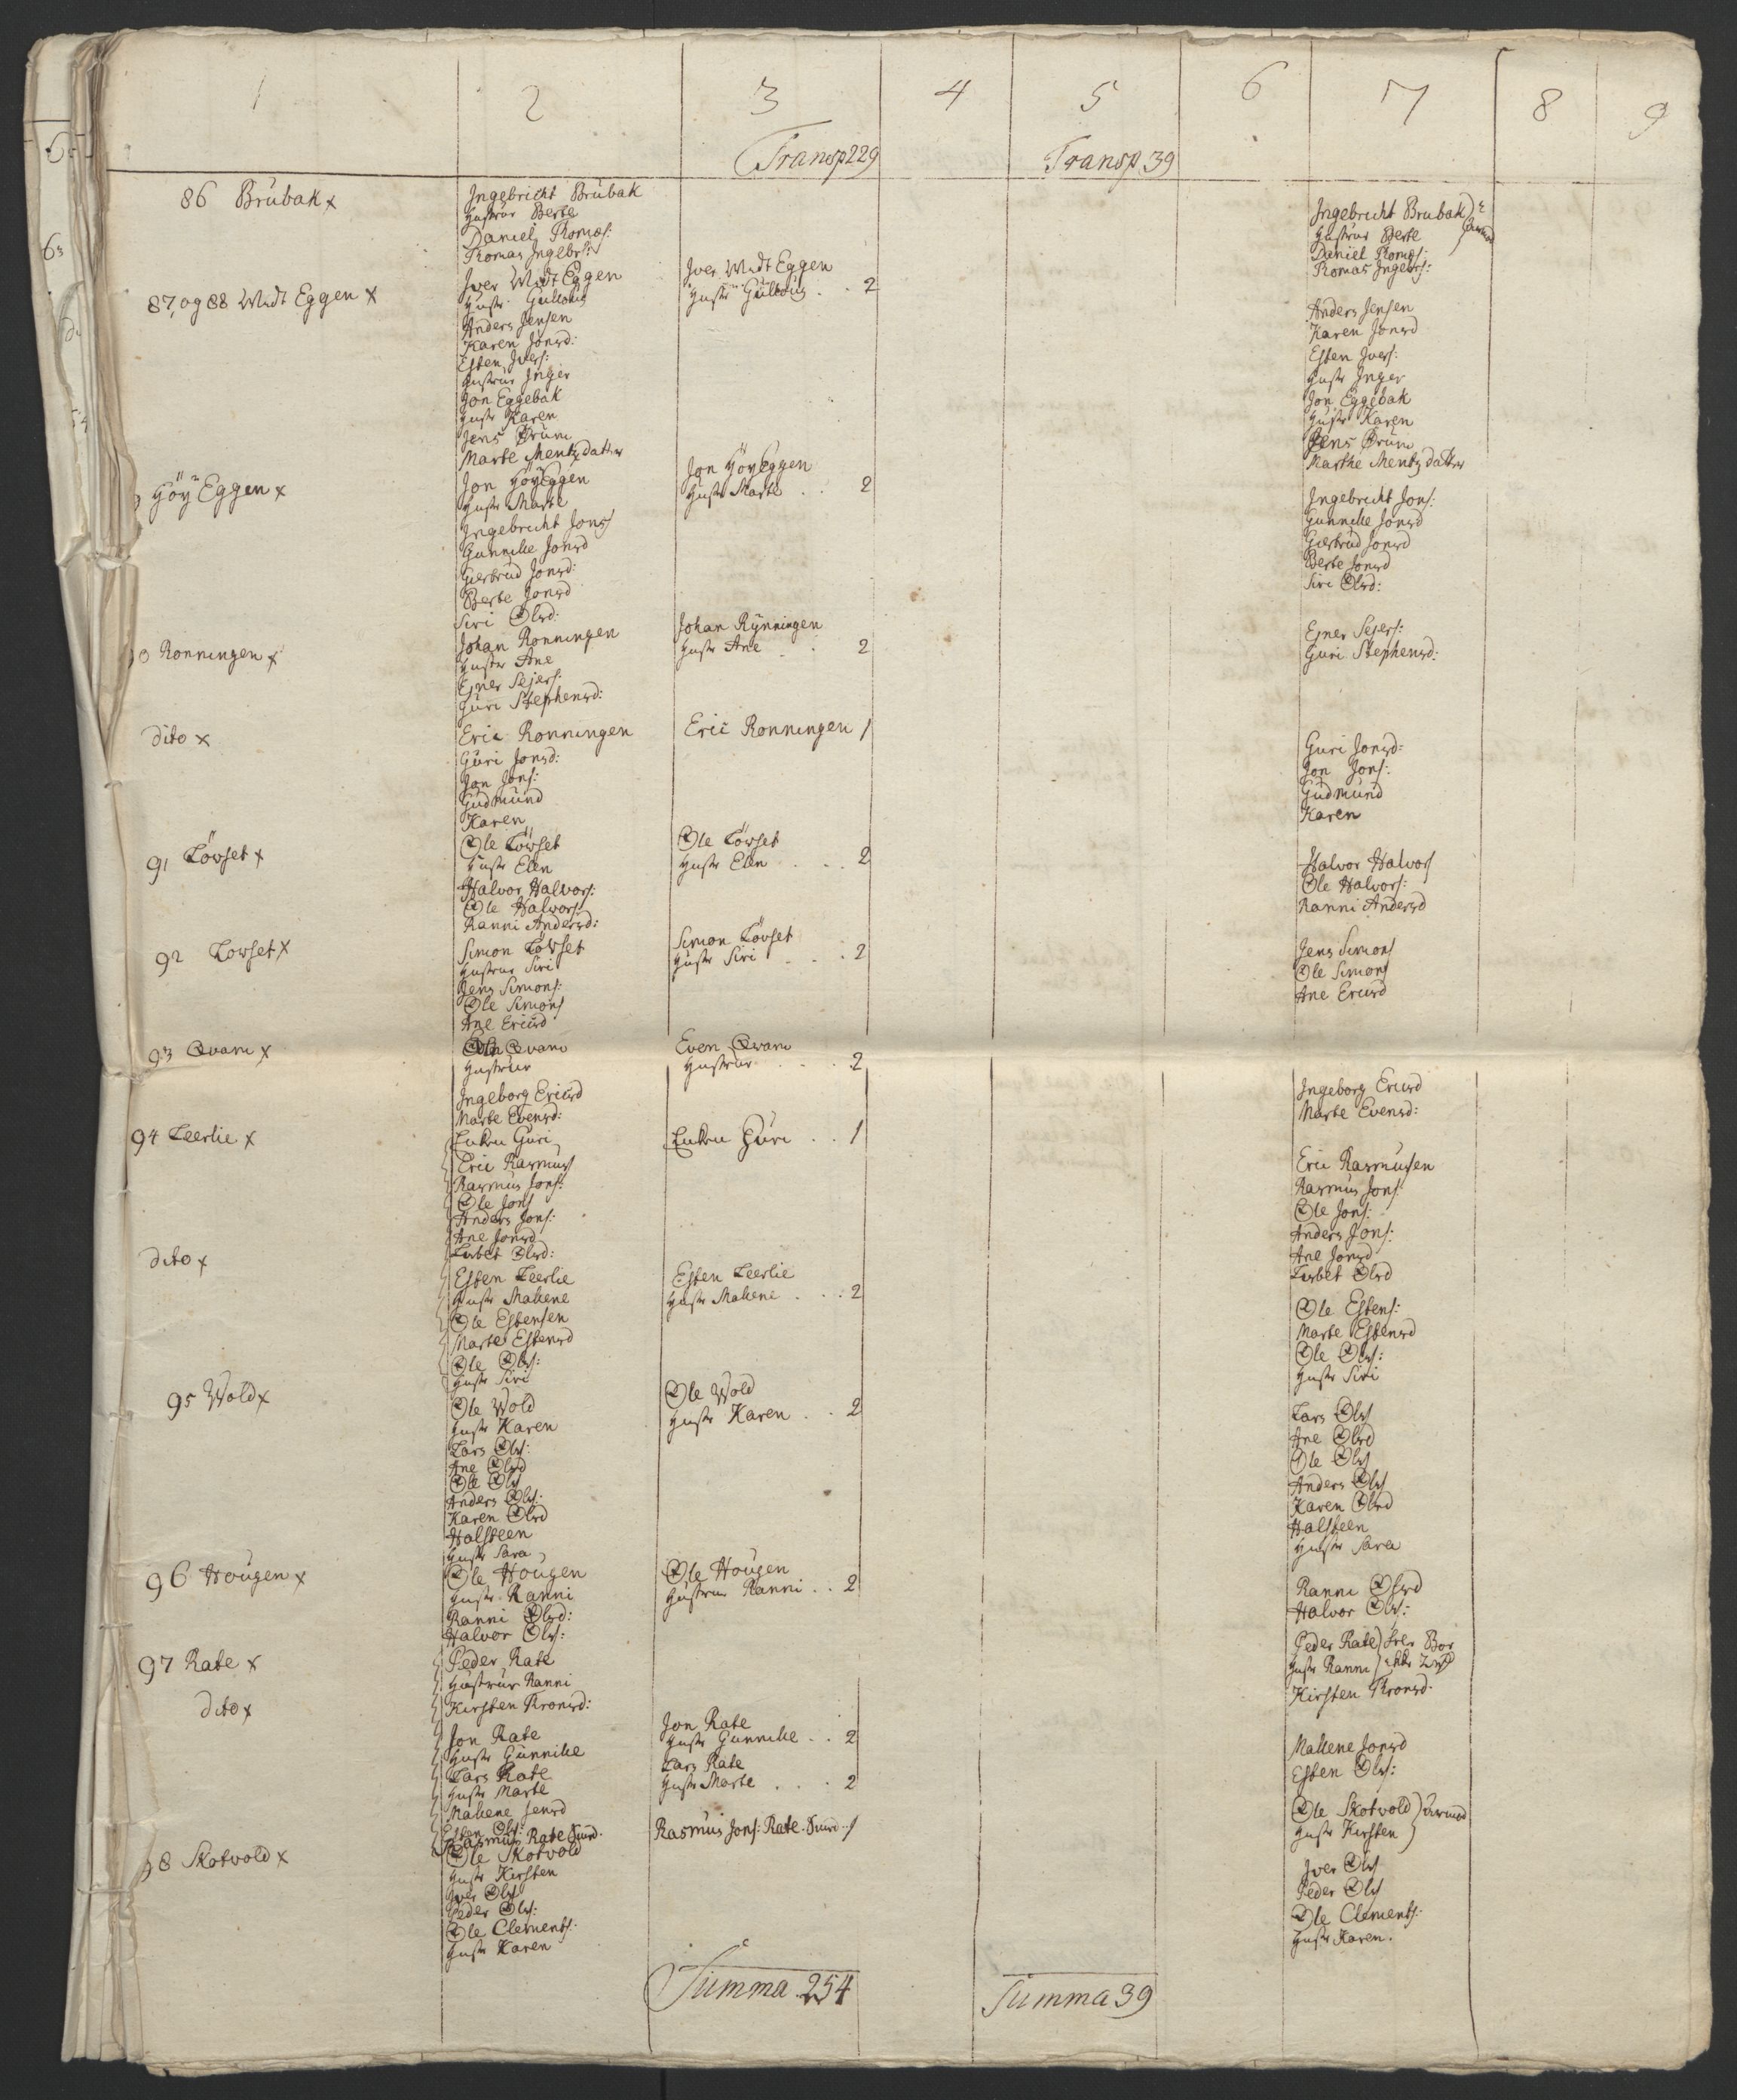 1 2 3 4 5 6 7 8 9
Transp 229 Transp 39
86 Brübak x
Ingebricht Brübak
Hustrue Berte
Daniel Thomæs:
Thomas Ingebrs:
Ingebricht Brubak
Hustrue Berte
Daniel Thomæs:
Thomas Ingebrs:
87, og 88 Midt Eggen x
Iver Midt Eggen
Hustr Gulloug
Anders Jensen
Karen Jonsd:
Esten Ivers:
Hustrue Inger
Jon Eggebak
Hustr Karen
Jens Brun
Marte Mentzdatter
Iver Midt Eggen
Hustr Gülloug . . 2
Anders Jensen
Karen Jonsd
Esten Ivers:
Hustr Inger
Jon Eggebak
Hustr Karen
Jens Brun
Marthe Mentzdatter
Höy Eggen x
Jon HöyEggen
Hustr Marte
Ingebricht Jons
Gunnille Jonsd
Giertrud Jonsd:
Berte Jonsd
Siri Olsd:
Jon HöyEggen
Hustr Marte . . 2
Ingebricht Jons:
Gunnille Jonsd
Giertrud Jonsd
Berte Jonsd
Siri Olsd:
0 Ronningen x
Johan Ronningen
Hustr Ane
Ejner Sejers:
Guri Stephensd:
Johan Rynningen
Hustr Ane . . 2
Ejner Sejers:
Guri Stephensd:
dito x
Eric Ronningen
Güri Jonsd:
Jon Jons:
Gudmünd
Karen
Eric Ronningen 1
Guri Jonsd:
Jon Jons:
Gudmünd
Karen
91 Lövset x
Ole Lövset
Hustr Elen
Halvor Halvors:
Ole Halvors:
Ranni Andersd:
Ole Lövset
Hustr Elen . . . 2
Halvor Halvors
Ole Halvors:
Ranni Andersd
92 Lovset x
Simon Lövset
Hustrue Siri
Jens Simons:
Ole Simons
Ane Ericsd
Simon Lövset
Hustr Siri . . . 2
Jens Simons
Ole Simons
Ane Ericsd
93 Qvam x
Qvam
Hustrue
Ingeborg Ericsd
Marte Evensd:
Even Qvam
Hustrue . . . 2
Ingeborg Ericsd
Marte Evensd:
94 Leerlie x
Enken Guri
Eric Rasmus
Rasmus Jons:
Ole Jons
Anders Jons:
Ane Jonsd
Lisbet Olsd:
Enken Güri . . 1
Eric Rasmusen
Rasmus Jons:
Ole Jons:
Anders Jons:
Ane Jonsd
Lisbet Olsd
dito x
Esten Leerlie
Hustr Malene
Ole Estensen
Marte Estensd
Ole Ols:
Hustr Siri
Esten Leerlie
Hustr Malene . . . 2
Ole Estens:
Marte Estensd
Ole Ols:
Hustr Siri
95 Wold x
Ole Wold
Hustr Karen
Lars Ols:
Ane Olsd
Ole Ols
Anders Ols:
Karen Olsd
Halsteen
Hustr Sara
Ole Wold
Hustr Karen . . 2
Lars Ols
Ane Olsd
Ole Ols
Anders Ols
Karen Olsd
Halsteen
Hustr Sara
96 Hougen x
Ole Hougen
Hustr Ranni
Ranni Olsd:
Halvor Ols:
Ole Hougen
Hustrue Ranni . . 2
Ranni Olsd
Halvor Ols:
97 Rate x
Peder Rate
Hustrue Ranni
Kirsten Tronsd:
Peder Rate
Hustr Ranni
Kirsten Tronsd:
dito x
Jon Rate
Hustr Gunnille
Lars Rate
Hustr Marte
Malene Jensd
Esten Ols:
Rasmus Rate
Jon Rate
Hustr Gunnille . . 2
Lars Rate
Hustr Marte . . . 2
Rasmus Jons: Rate 1
Malene Jonsd
Esten Ols:
98 Skotvold x
Ole Skotvold
Hustr Kirsten
Iver Ols
Peder Ols:
Ole Clements:
Hustr Karen
Ole Skotvold
Hustr Kirsten
Iver Ols
Peder Ols
Ole Clements:
Hustr Karen.
Summa 254 Summa 39